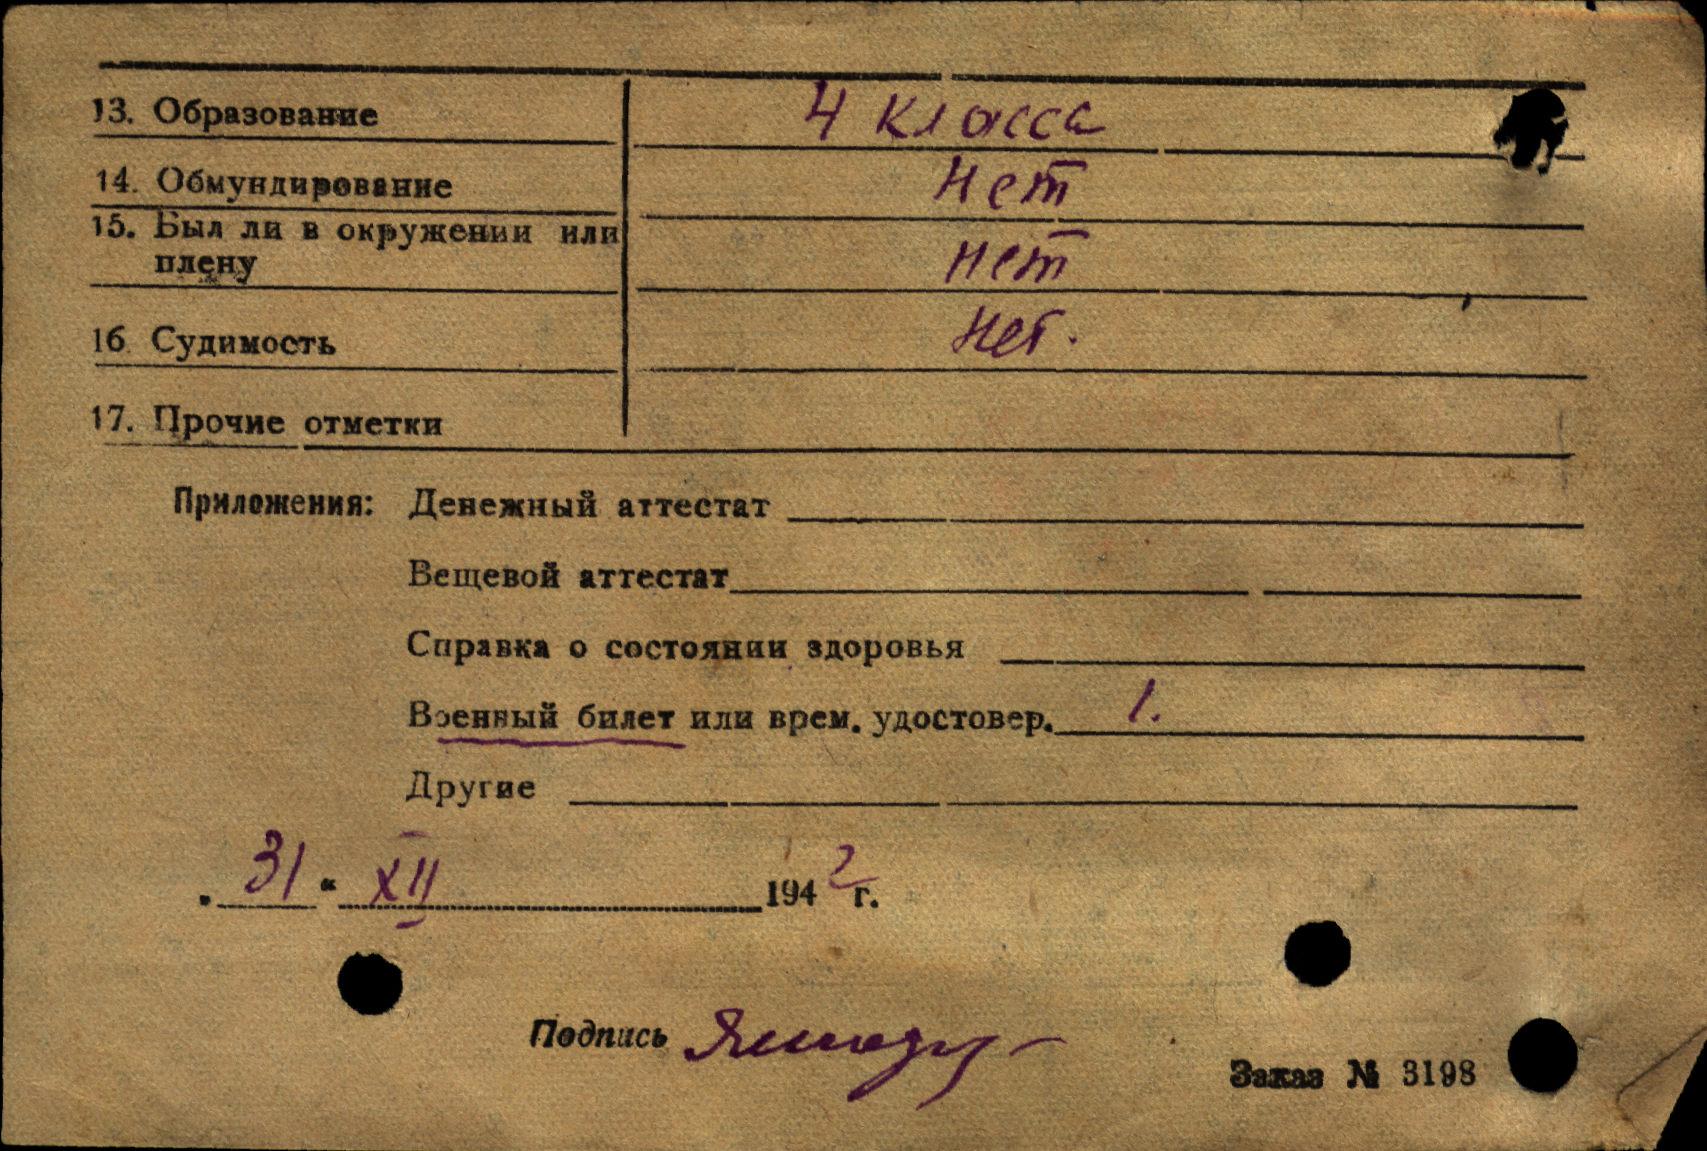 13. Образование 4 класса
14. Обмундирование Нет
15. Был ли в окружении или
плену нет
16. Судимость Нет.
17. Прочие отметки
Приложения: Денежный аттестат
Вещевой аттестат
Справка о состоянии здоровья
Военный билет или врем. удостовер. 1.
Другие
„ 31 “ XII 1942 г.
Подпись
Заказ № 3198